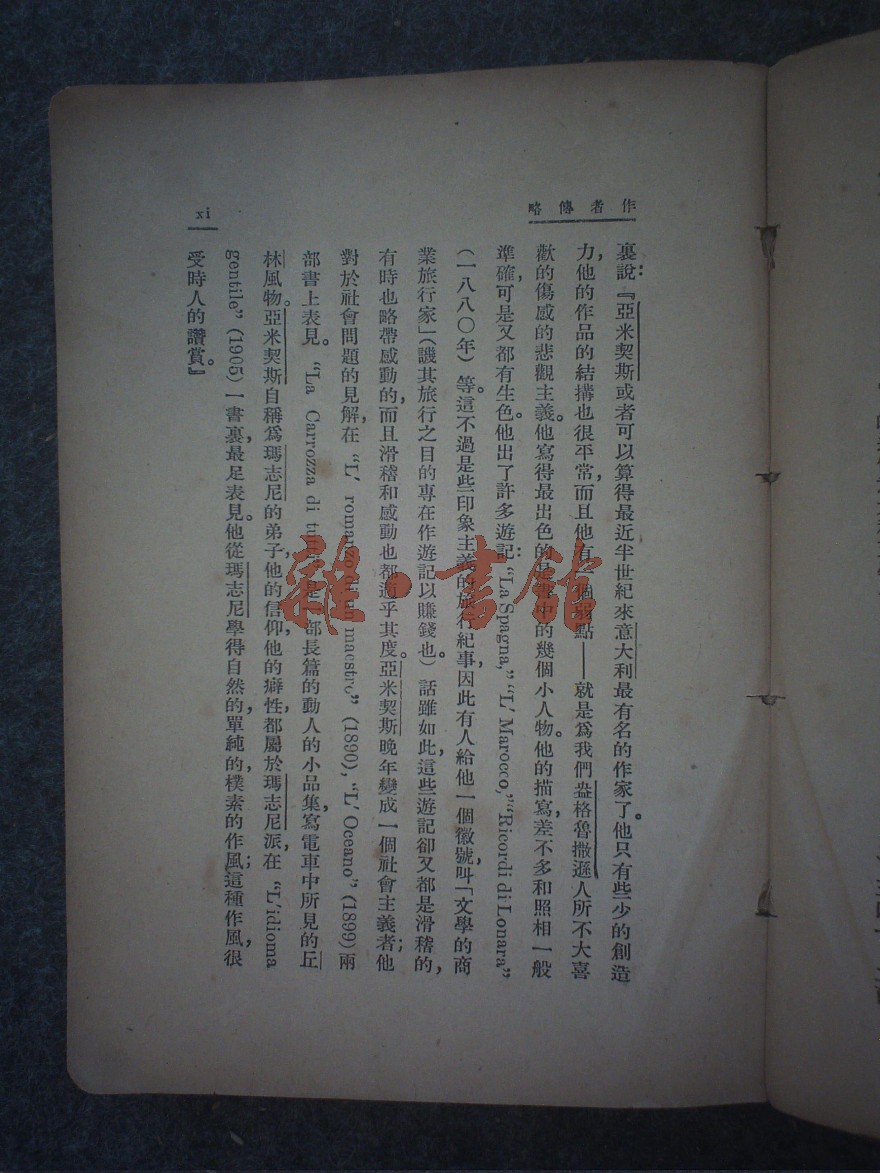 作者傳略
裏說：『亞米契斯或者可以算得最近半世紀來意大利最有名的作家了。他只有些少的創造
力，他的作品的結搆也很平常，而且他有一個弱點——就是爲我們盎格魯撒遜人所不大喜
歡的傷感的悲觀主義。他寫得最出色的是書中的幾個小人物。他的描寫，差不多和照相一般
準確，可是又都有生色。他出了許多遊記：“La Spagna,” “L' Marocco,” “Ricordi di Lonara”
（一八八〇年）等。這不過是些印象主義的旅行紀事，因此有人給他一個徽號，叫「文學的商
業旅行家」（譏其旅行之目的專在作遊記以賺錢也。）話雖如此，這些遊記卻又都是滑稽的，
有時也略帶感動的，而且滑稽和感動也都適乎其度。亞米契斯晚年變成一個社會主義者；他
對於社會問題的見解，在 “L' romanzo di un maestro” (1890), “L' Oceano” (1899) 兩
部書上表見。“La Carrozza di tutti” 是一部長篇的動人的小品集，寫電車中所見的丘
林風物。亞米契斯自稱爲瑪志尼的弟子，他的信仰，他的癖性，都屬於瑪志尼派，在 “L'idioma
gentile” (1905) 一書裏最足表見。他從瑪志尼學得自然的，單純的，樸素的作風；這種作風，很
受時人的讚賞。』
xi
雜·書館